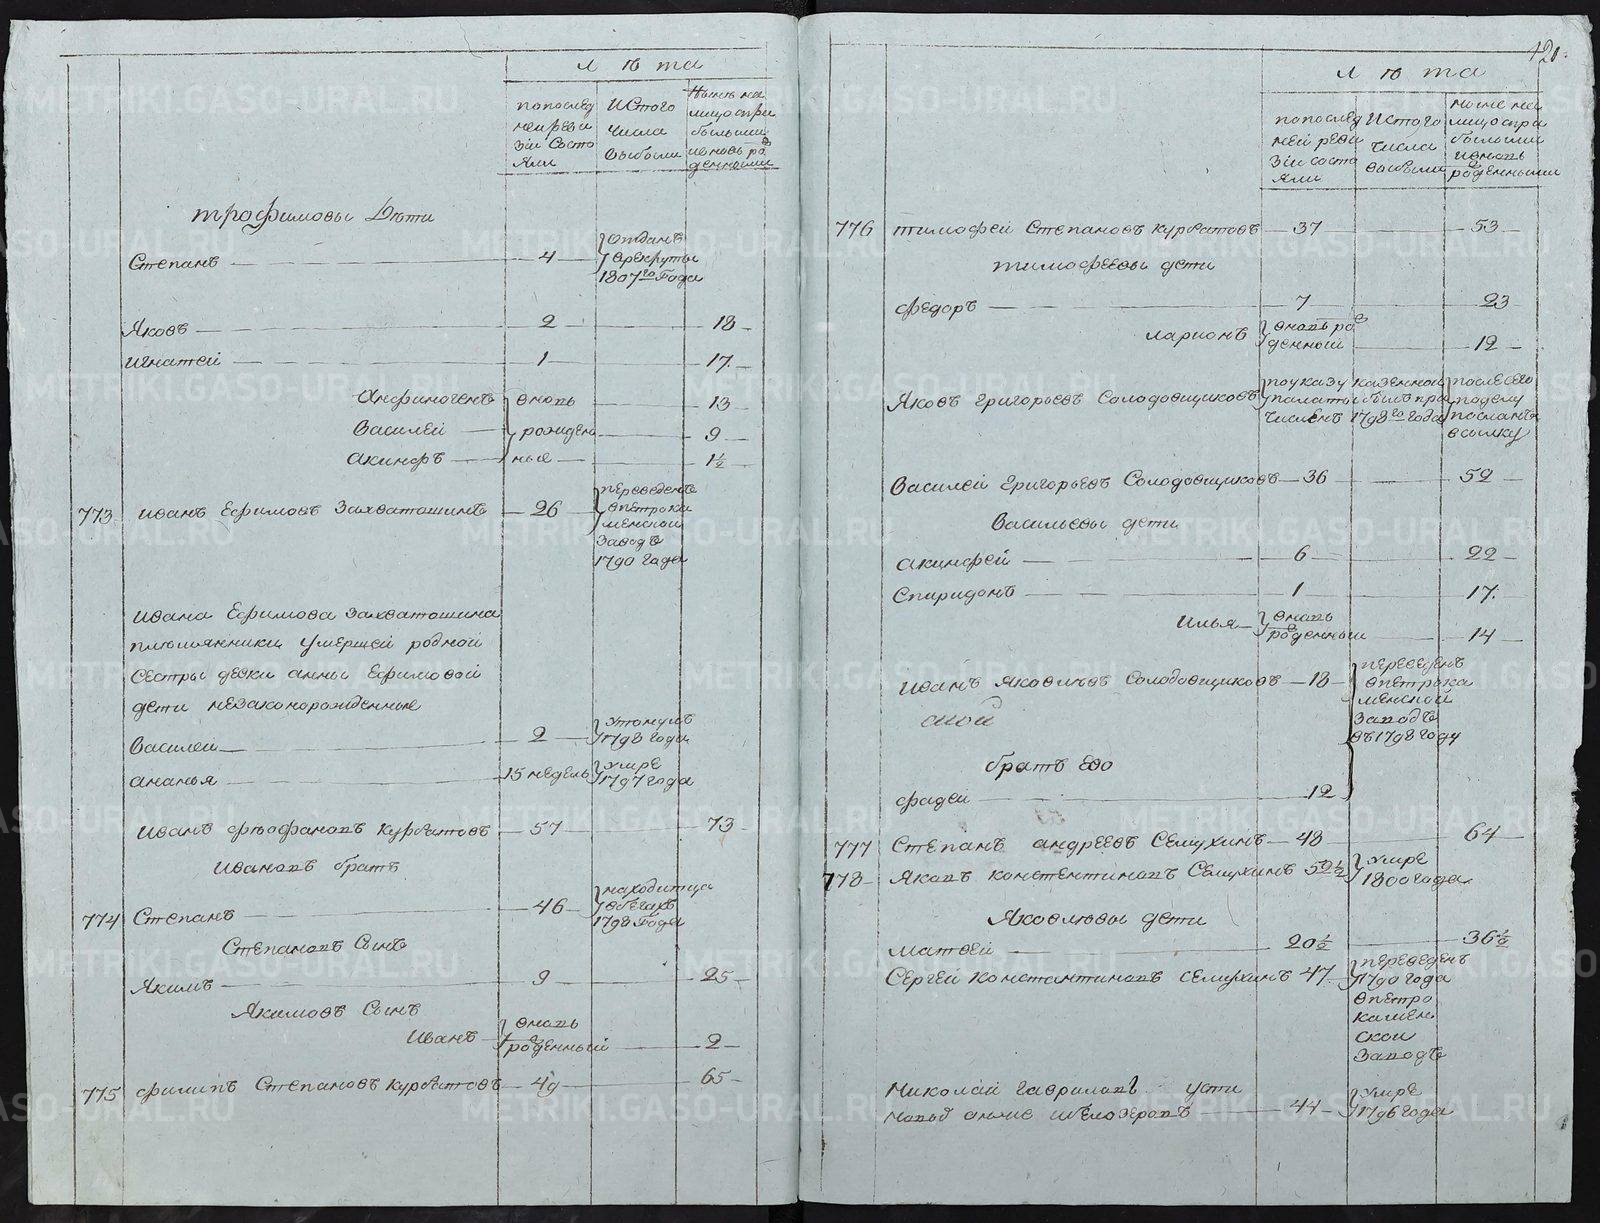 лѣта
попослед
ней реви
зіи состо
яли
Истого
числа
выбыли
Ныне на
лицо спри
былыми
ивновь ро
жденными
трофимовы Дѣти
Степанъ 4 Отданъ
врекруты
1807го Года
Яковъ 2 18
Игнатей 1 17
Анфиногенъ вновь 13
Василей рожден 9
Акинфъ ные 1½
773 Иванъ Ефимовъ Захваташинъ 26 переведенъ
впетрока
менской
заводъ
1790 года
Ивана Ефимова Захваташина
племянники умершей родной
сестры девки анны Ефимовой
дети незаконорожденные
Василей 2 утонулъ
1798 года
ананья 15 недель умре
1797 года
Иванъ фѣофановъ Курбатовъ 57 73
Ивановъ братъ
774 Степанъ 46 находитца
вбегахъ
1798 Года
Степановъ Сынъ
Якимъ 9 25
Якимовъ Сынъ
Иванъ вновь
рожденный 2
775 филипъ Степановъ Курбатовъ 49 65
121.
лѣта
попослед
ней реви
зіи состо
яли
Истого
числа
выбыли
Ныне на
лицо спри
былыми
ивновь
рожденными
776 тимофей Степановъ Курбатовъ 37 53
тимофеевы дети
федоръ 7 23
ларионъ вновь ро
жденный 12
Яковъ григорьевъ Солодовщиковъ поуказу казенной
палаты былъ при
численъ 1798го года
после сего
поделу
посланъ
всылку
Василей Григорьевъ Солодовщиковъ 36 52
Васильевы дети
акинфей 6 22
Спиридонъ 1 17
Илья вновь
рожденный 14
Иванъ Яковлевъ Солодовщиковъ 18 переведенъ
впетрока
менской
заводъ
въ 1798 году
братъ Его
фадей 12
777 Степанъ андреевъ Семухинъ 48 64
778 Яковъ констентиновъ Семухинъ 52½ умре
1800 года
Яковлевы дети
матвей 20½ 36½
Сергей Константиновъ Семухинъ 47 переведенъ
1790 года
впетро
камен
ской
заводъ
Николай гавриловъ
44 умре
1796 года
METRIKI.GASO-URAL.RU